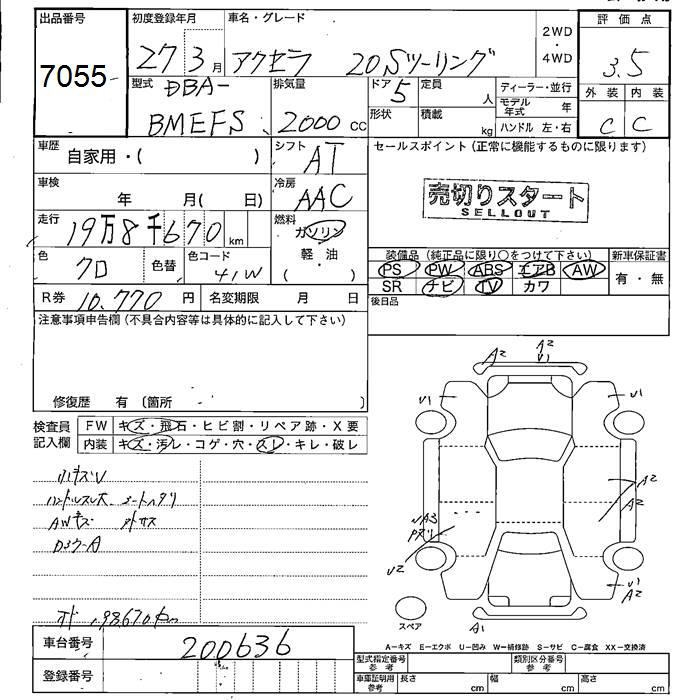 出品番号
7055
初度登録年月
27 3月
車名・グレード
アクセラ 20Sツーリング
2WD
・
4WD
評価点
3.5
外装 内装
C C
型式
DBA-
BMEFS
排気量
2000 cc
ドア 5
形状
定員 人
積載 kg
ディーラー・並行
モデル年式 年
ハンドル 左・右
車歴
自家用・( )
シフト
AT
セールスポイント (正常に機能するものに限ります)
売切りスタート
SELLOUT
車検
年 月( 日)
冷房
AAC
走行
19万8千670 km
燃料
ガソリン
軽・油
・
色
クロ
色替
色コード
41W
装備品 (純正品に限り○をつけて下さい)
PS PW ABS エアB AW
SR ナビ TV カワ
新車保証書
有・無
後日品
R券 10,770 円
名変期限 月 日
注意事項申告欄 (不具合内容等は具体的に記入して下さい)
修復歴 有 (箇所 )
検査員
記入欄
FW キズ・飛石・ヒビ割・リペア跡・X要
内装 キズ・汚レ・コゲ・穴・スレ・キレ・破レ
小キズV
ハンドルスレ大 シートヘタリ
AWキズ
198670km
A2 A2
V1
V1 V1
A2
A2
V2
V1
A2
A1
スペア
A-キズ E-エクボ U-凹み W-補修跡 S-サビ C-腐食 XX-交換済
車台番号 200636
登録番号
型式指定番号
参考
類別区分番号
参考
車庫証明用
参考
長さ cm 幅 cm 高さ cm